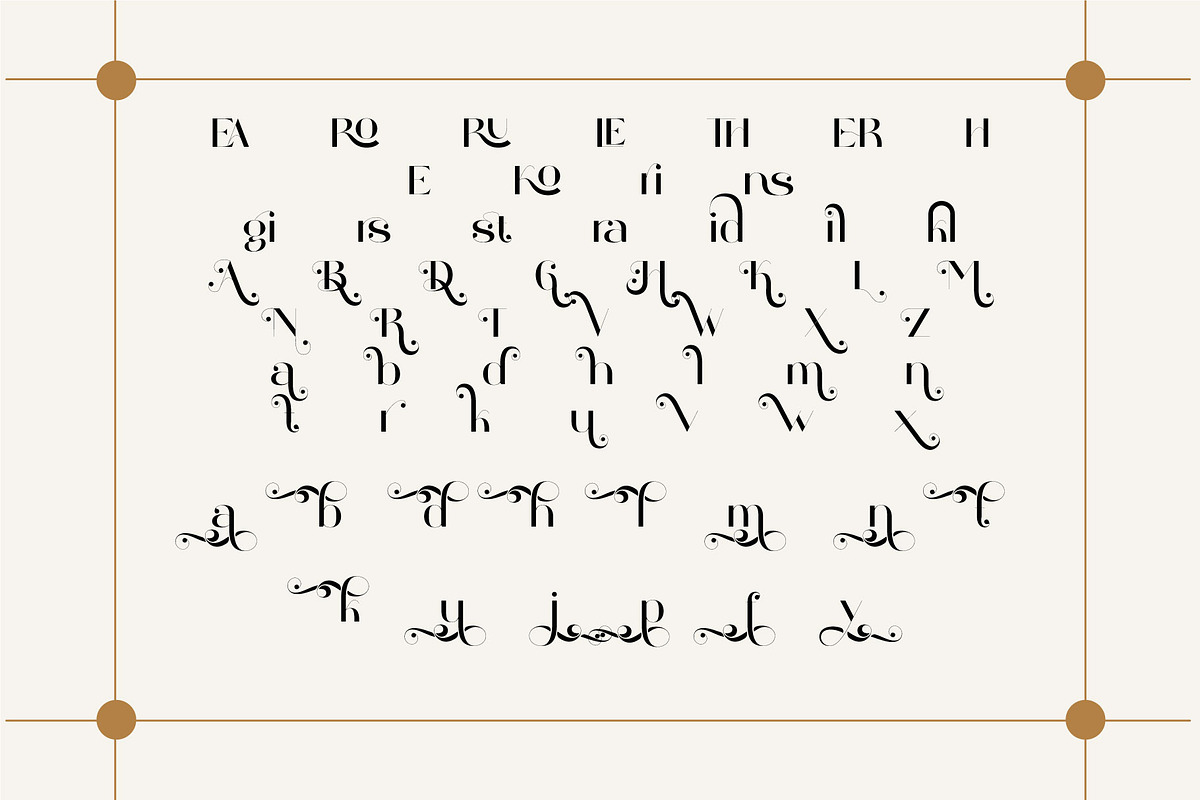 EA RO RU LE TH ER H
E KO ri ns
gi rs st ra id il fl
A B D G H K L M
N R T V W X Z
a b d h l m n
t r k u v w x
a b d h l m n t
k u j p f y